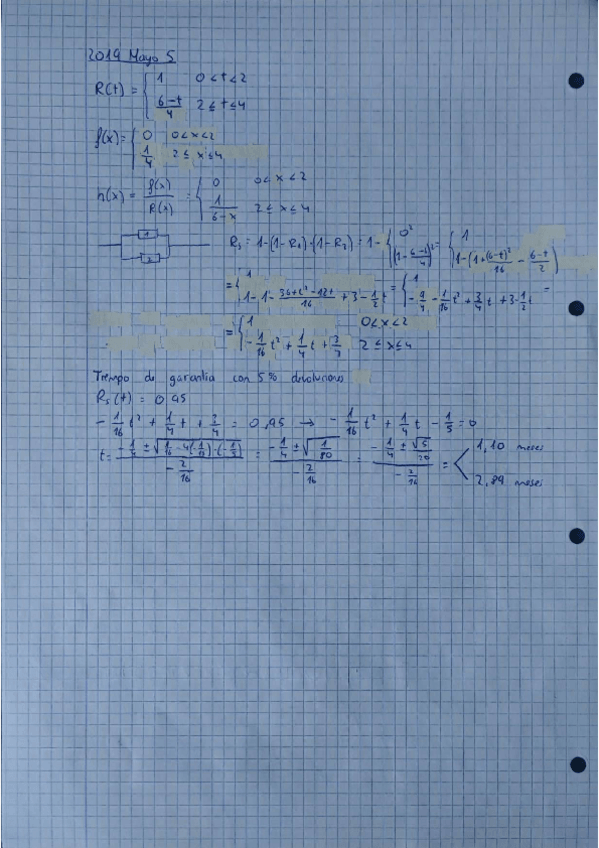 2019 Mayo 5
R(t) = { 1   0 < t < 2
6-t/4   2 ≤ t ≤ 4
f(x) = { 0   0 < x < 2
1/4   2 ≤ x ≤ 4
h(x) = f(x)/R(x) = { 0   0 < x < 2
1/(6-x)   2 ≤ x ≤ 4
1
2
Rs = 1-(1-R1)·(1-R2) = 1- { 0² = { 1
(1-(6-t)/4)²   1-(1+(6-t)²/16 - (6-t)/2)
= { 1 = { 1 =
1-1-(36+t²-12t)/16 + 3 - 1/2 t   -9/4 - 1/16 t² + 3/4 t + 3-1/2 t
= { 1   0 < x < 2
-1/16 t² + 1/4 t + 3/4   2 ≤ x ≤ 4
Tiempo de garantia con 5% devoluciones
Rs(t) = 0,95
-1/16 t² + 1/4 t + 3/4 = 0,95 → -1/16 t² + 1/4 t - 1/5 = 0
t = (-1/4 ± √(1/16 - 4(-1/16)·(-1/5)))/(-2/16) = (-1/4 ± √(1/80))/(-2/16) = (-1/4 ± √5/20)/(-2/16) = < 1,10 meses
2,89 meses